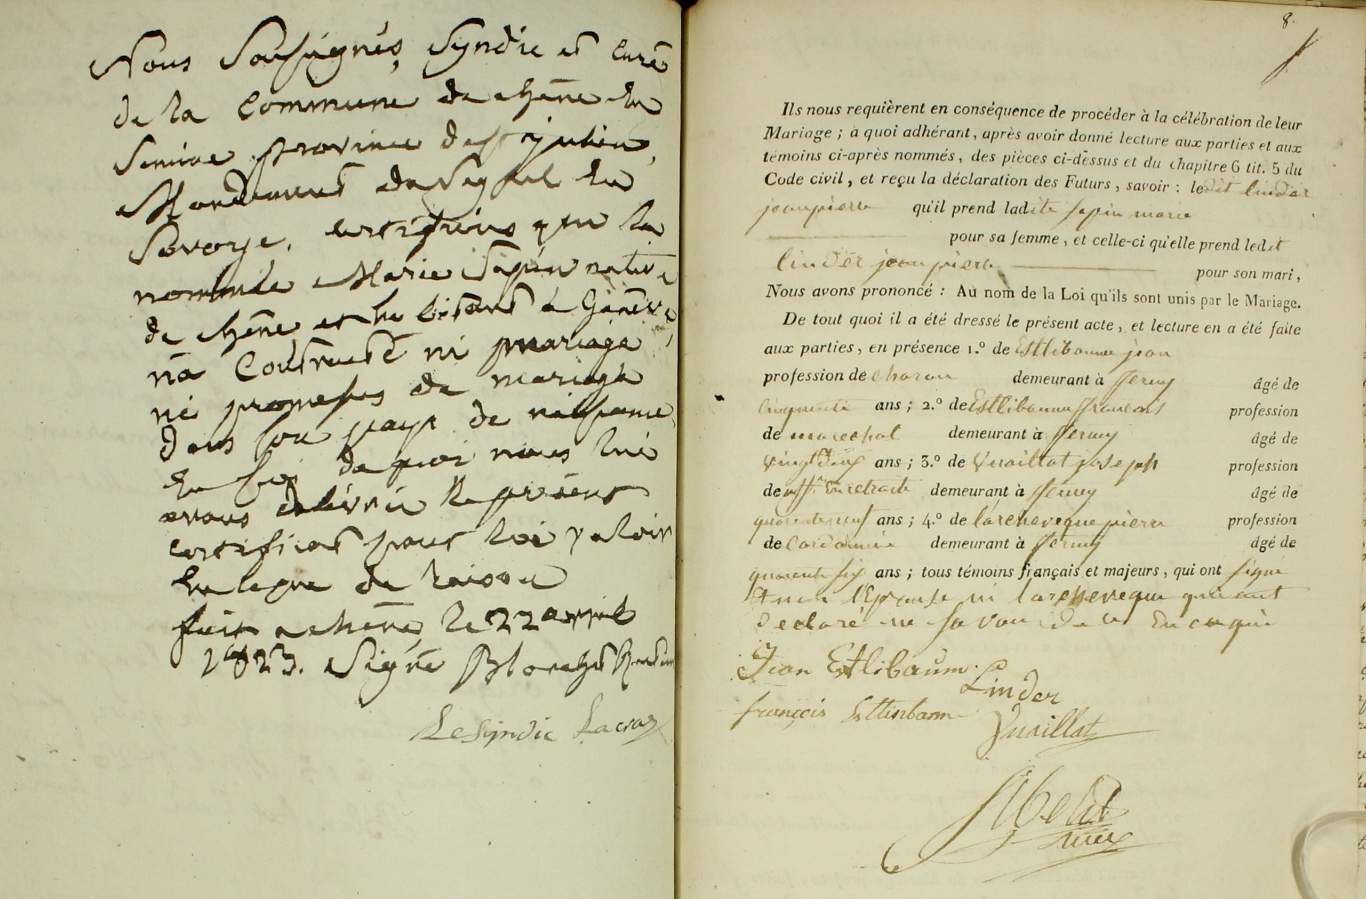 Nous Soussignés, Syndic et Curé
de la Commune de chêne en
Semine province de St julien,
Mandement de Seyssel en
Savoye, certifions que la
nommée Marie Sapin native
de chêne, et habitant à Genève,
n'a Contracté ni mariage
ni promesses de mariage
dans son pays de naissance
en foi de quoi nous lui
avons délivré le présent
certificat pour lui valoir
en legue de raison
fait a chêne, le 22 avril
1823. Signé
Le Syndic Lacroix
8.
Ils nous requièrent en conséquence de procéder à la célébration de leur
Mariage ; à quoi adhérant, après avoir donné lecture aux parties et aux
témoins ci-après nommés, des pièces ci-dessus et du chapitre 6 tit. 5 du
Code civil, et reçu la déclaration des Futurs, savoir : ledit linder
jean pierre qu'il prend ladite Sapin marie
pour sa femme, et celle-ci qu'elle prend ledit
linder jean pierre pour son mari,
Nous avons prononcé : Au nom de la Loi qu'ils sont unis par le Mariage.
De tout quoi il a été dressé le présent acte, et lecture en a été faite
aux parties, en présence 1.º de Esttibaume jean
profession de charon demeurant à ferney âgé de
cinquante ans ; 2.º de Esttibaume francois profession
de marechal demeurant à ferney âgé de
vingt deux ans ; 3.º de Vuaillat joseph profession
de off. en retraite demeurant à ferney âgé de
quarante neuf ans ; 4.º de larcheveque pierre profession
de cordonnier demeurant à ferney âgé de
quarante six ans ; tous témoins français et majeurs, qui ont signé
et non l'Epouse ni larcheveque qui ont
declaré ne savoir de ce Enquis
Jean Ettlibaum
Linder
françois Ettlinbaum
Vuaillat